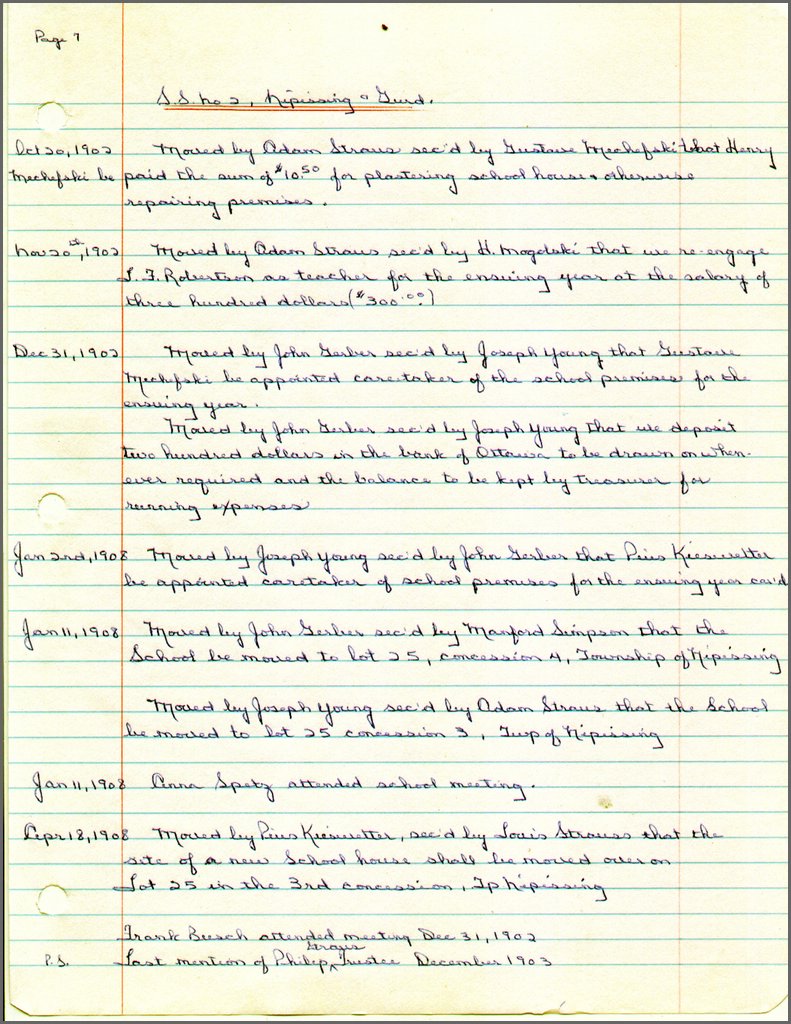 Page 7
S.S. No 2, Nipissing & Gurd.
Oct 20, 1902 Moved by Adam Straus sec'd by Gustave Mechefski that Henry
Mechefski be paid the sum of $10.50 for plastering school house & otherwise
repairing premises.
Nov 20th, 1902 Moved by Adam Straus sec'd by H. Mogdski that we re-engage
S. F. Robertson as teacher for the ensuing year at the salary of
three hundred dollars ($300.00)
Dec 31, 1902 Moved by John Gerber sec'd by Joseph Young that Gustave
Mechefski be appointed caretaker of the school premises for the
ensuing year.
Moved by John Gerber sec'd by Joseph Young that we deposit
two hundred dollars in the bank of Ottawa to be drawn on when-
ever required and the balance to be kept by treasurer for
running expenses
Jan 2nd, 1908 Moved by Joseph Young sec'd by John Gerber that Pius Kieswetter
be appointed caretaker of school premises for the ensuing year car'd
Jan 11, 1908 Moved by John Gerber sec'd by Manford Simpson that the
School be moved to lot 25, concession 4, Township of Nipissing
Moved by Joseph Young sec'd by Adam Straus that the School
be moved to lot 25 concession 3, Twp of Nipissing
Jan 11, 1908 Anna Spetz attended school meeting.
Apr 18, 1908 Moved by Pius Kieswetter, sec'd by Louis Strauss that the
site of a new School house shall be moved over on
Lot 25 in the 3rd concession, Tp Nipissing
Frank Busch attended meeting Dec 31, 1902
P.S. Last mention of Philip Straus Trustee December 1903